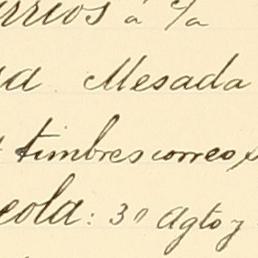 rreos á ½
a Mesada
timbres correos
cola: 3º Agto y